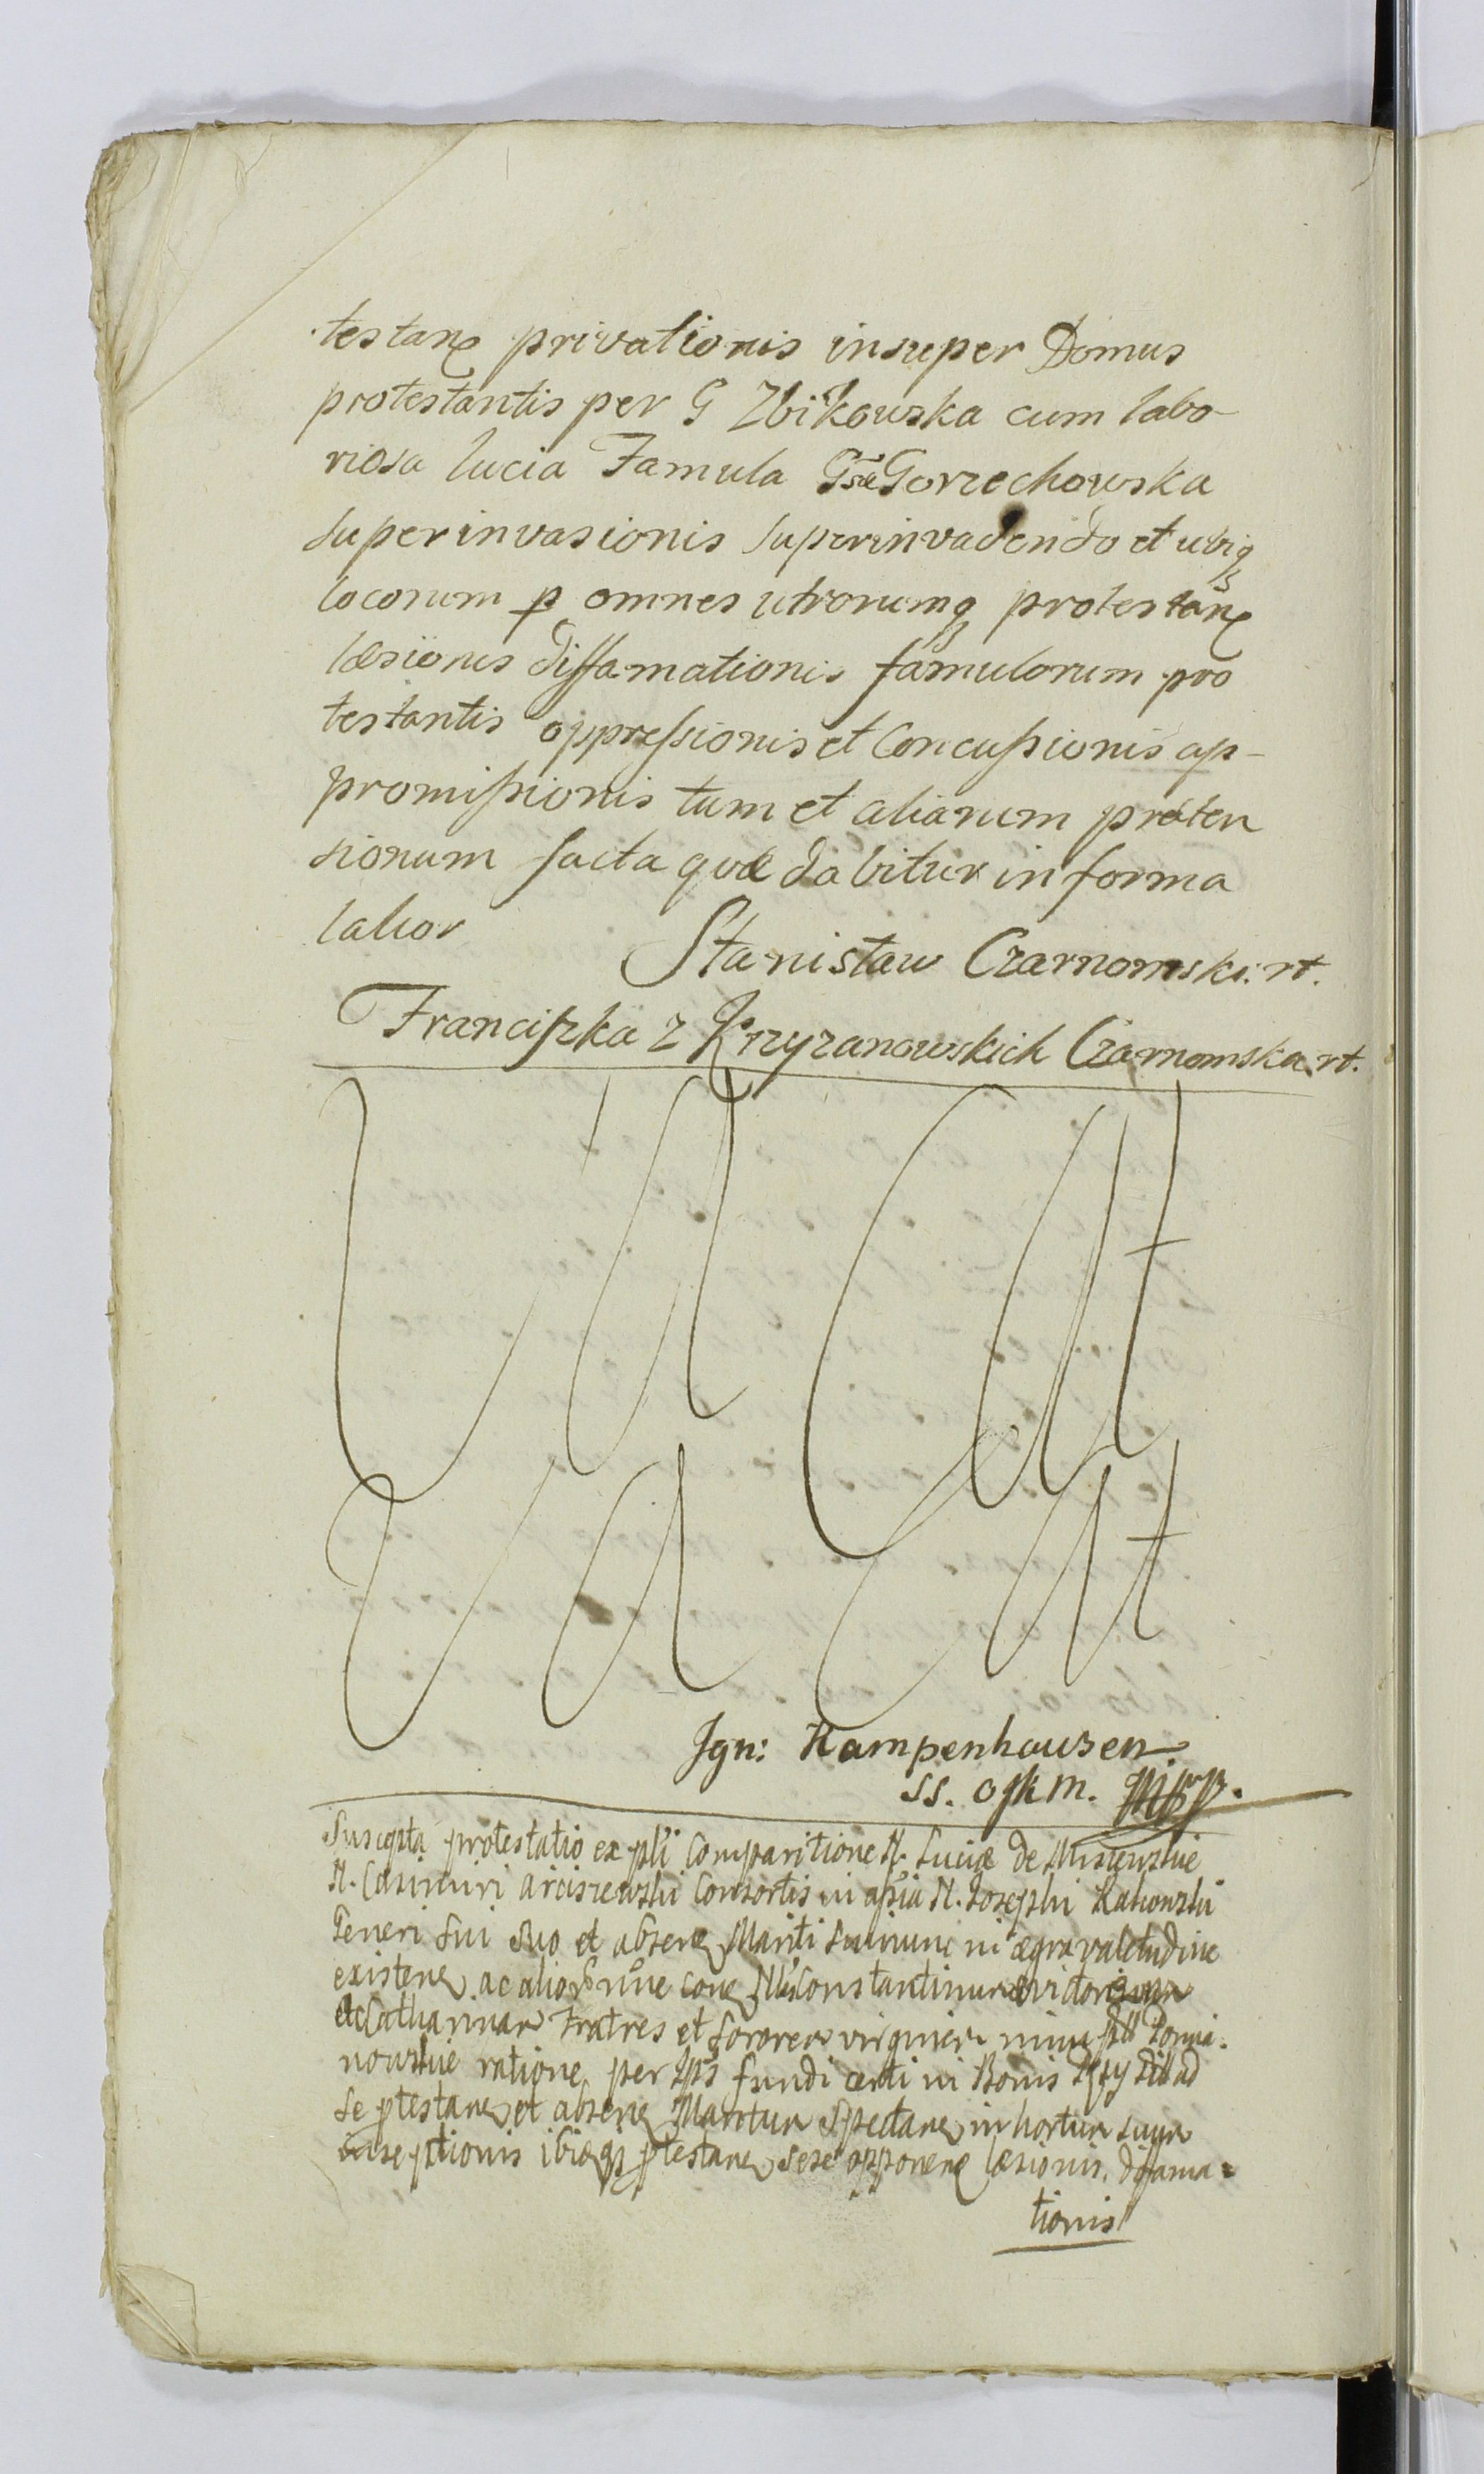 testane privationis insuper Domus
protestantis per G Zbikowska cum labo-
riosa lucia Famula Gsæ Gorzechowska
superinvasionis superinvadendo et ubiq
locorum p omnes utrorumq protestane
læsionis diffamationis famulorum pro
testantis oppressionis et Concussionis ap-
promissionis tum et aliarum præten
sionum facta quæ dabitur in forma
latior
Stanisław Czarnomski. rt.
Franciszka z Krzyzanowskich Czarnomska rt.
Vacat
Vacat
Ign: Kampenhausen
SS. O
Suscepta protestatio ex pli Comparitione N. Luciæ de
N. Casimiri Arciszewski Consortis in N. Josephi Rakowski
Generi sui suo et absene Mariti sui nunc in ægra valetudine
existene ac Constantinum
et Catharinam Fratres et Sororem
ratione per Ips fundi certi in Bonis ad
se ptestane et absene Maritum spectane in hortum suum
ptestane sese opponene læsionis, difama=
tionis